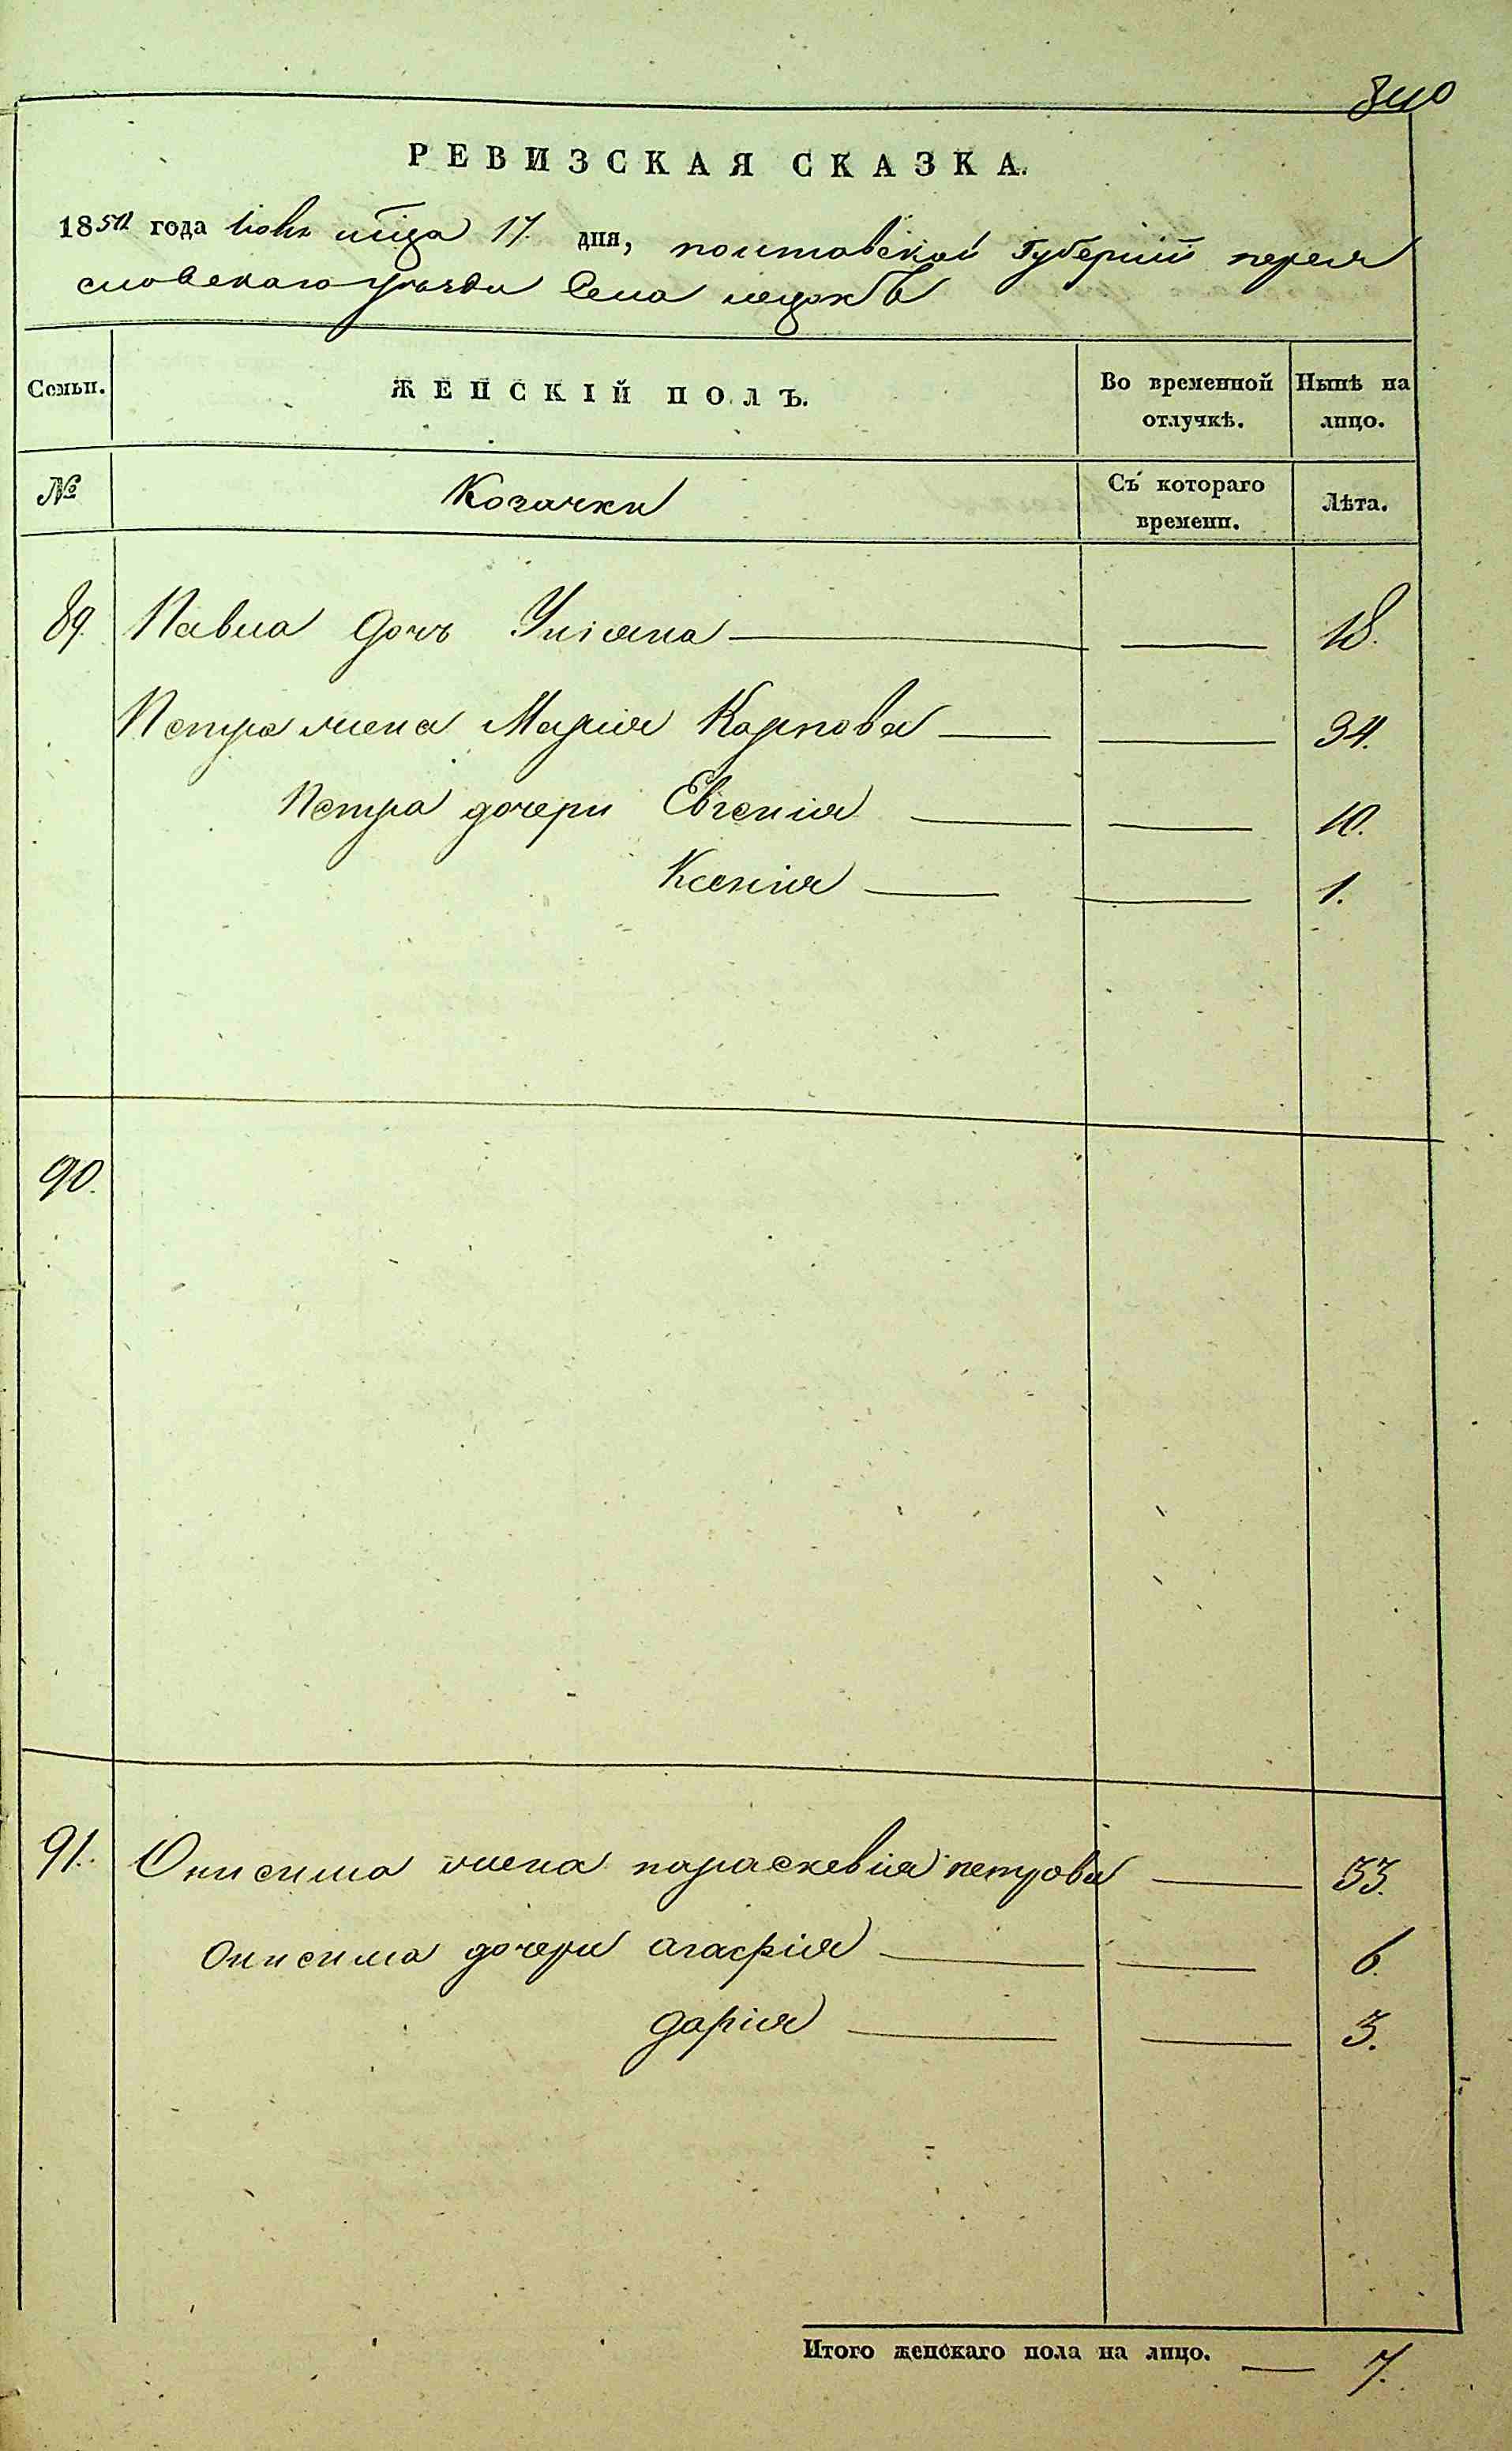 840
РЕВИЗСКАЯ СКАЗКА.
1850 года Іюня мѣсяца 17. дня, полтавской Губерніи перея
словскаго уѣзда Села
Семьи. ЖЕНСКІЙ ПОЛЪ. Во временной отлучкѣ. Нынѣ на лицо.
№ Козачки Съ котораго времени. Лѣта.
89. Павла Дочь Уліяна — — 18.
Петра жена Марія Карпова — — 34.
Петра дочери Евгенія — — 10.
Ксенія — — 1.
90.
91. Онисима жена параскевія петрова — 33.
Онисима дочери агафія — — 6.
дарія — — 3.
Итого женскаго пола на лицо. — 7.